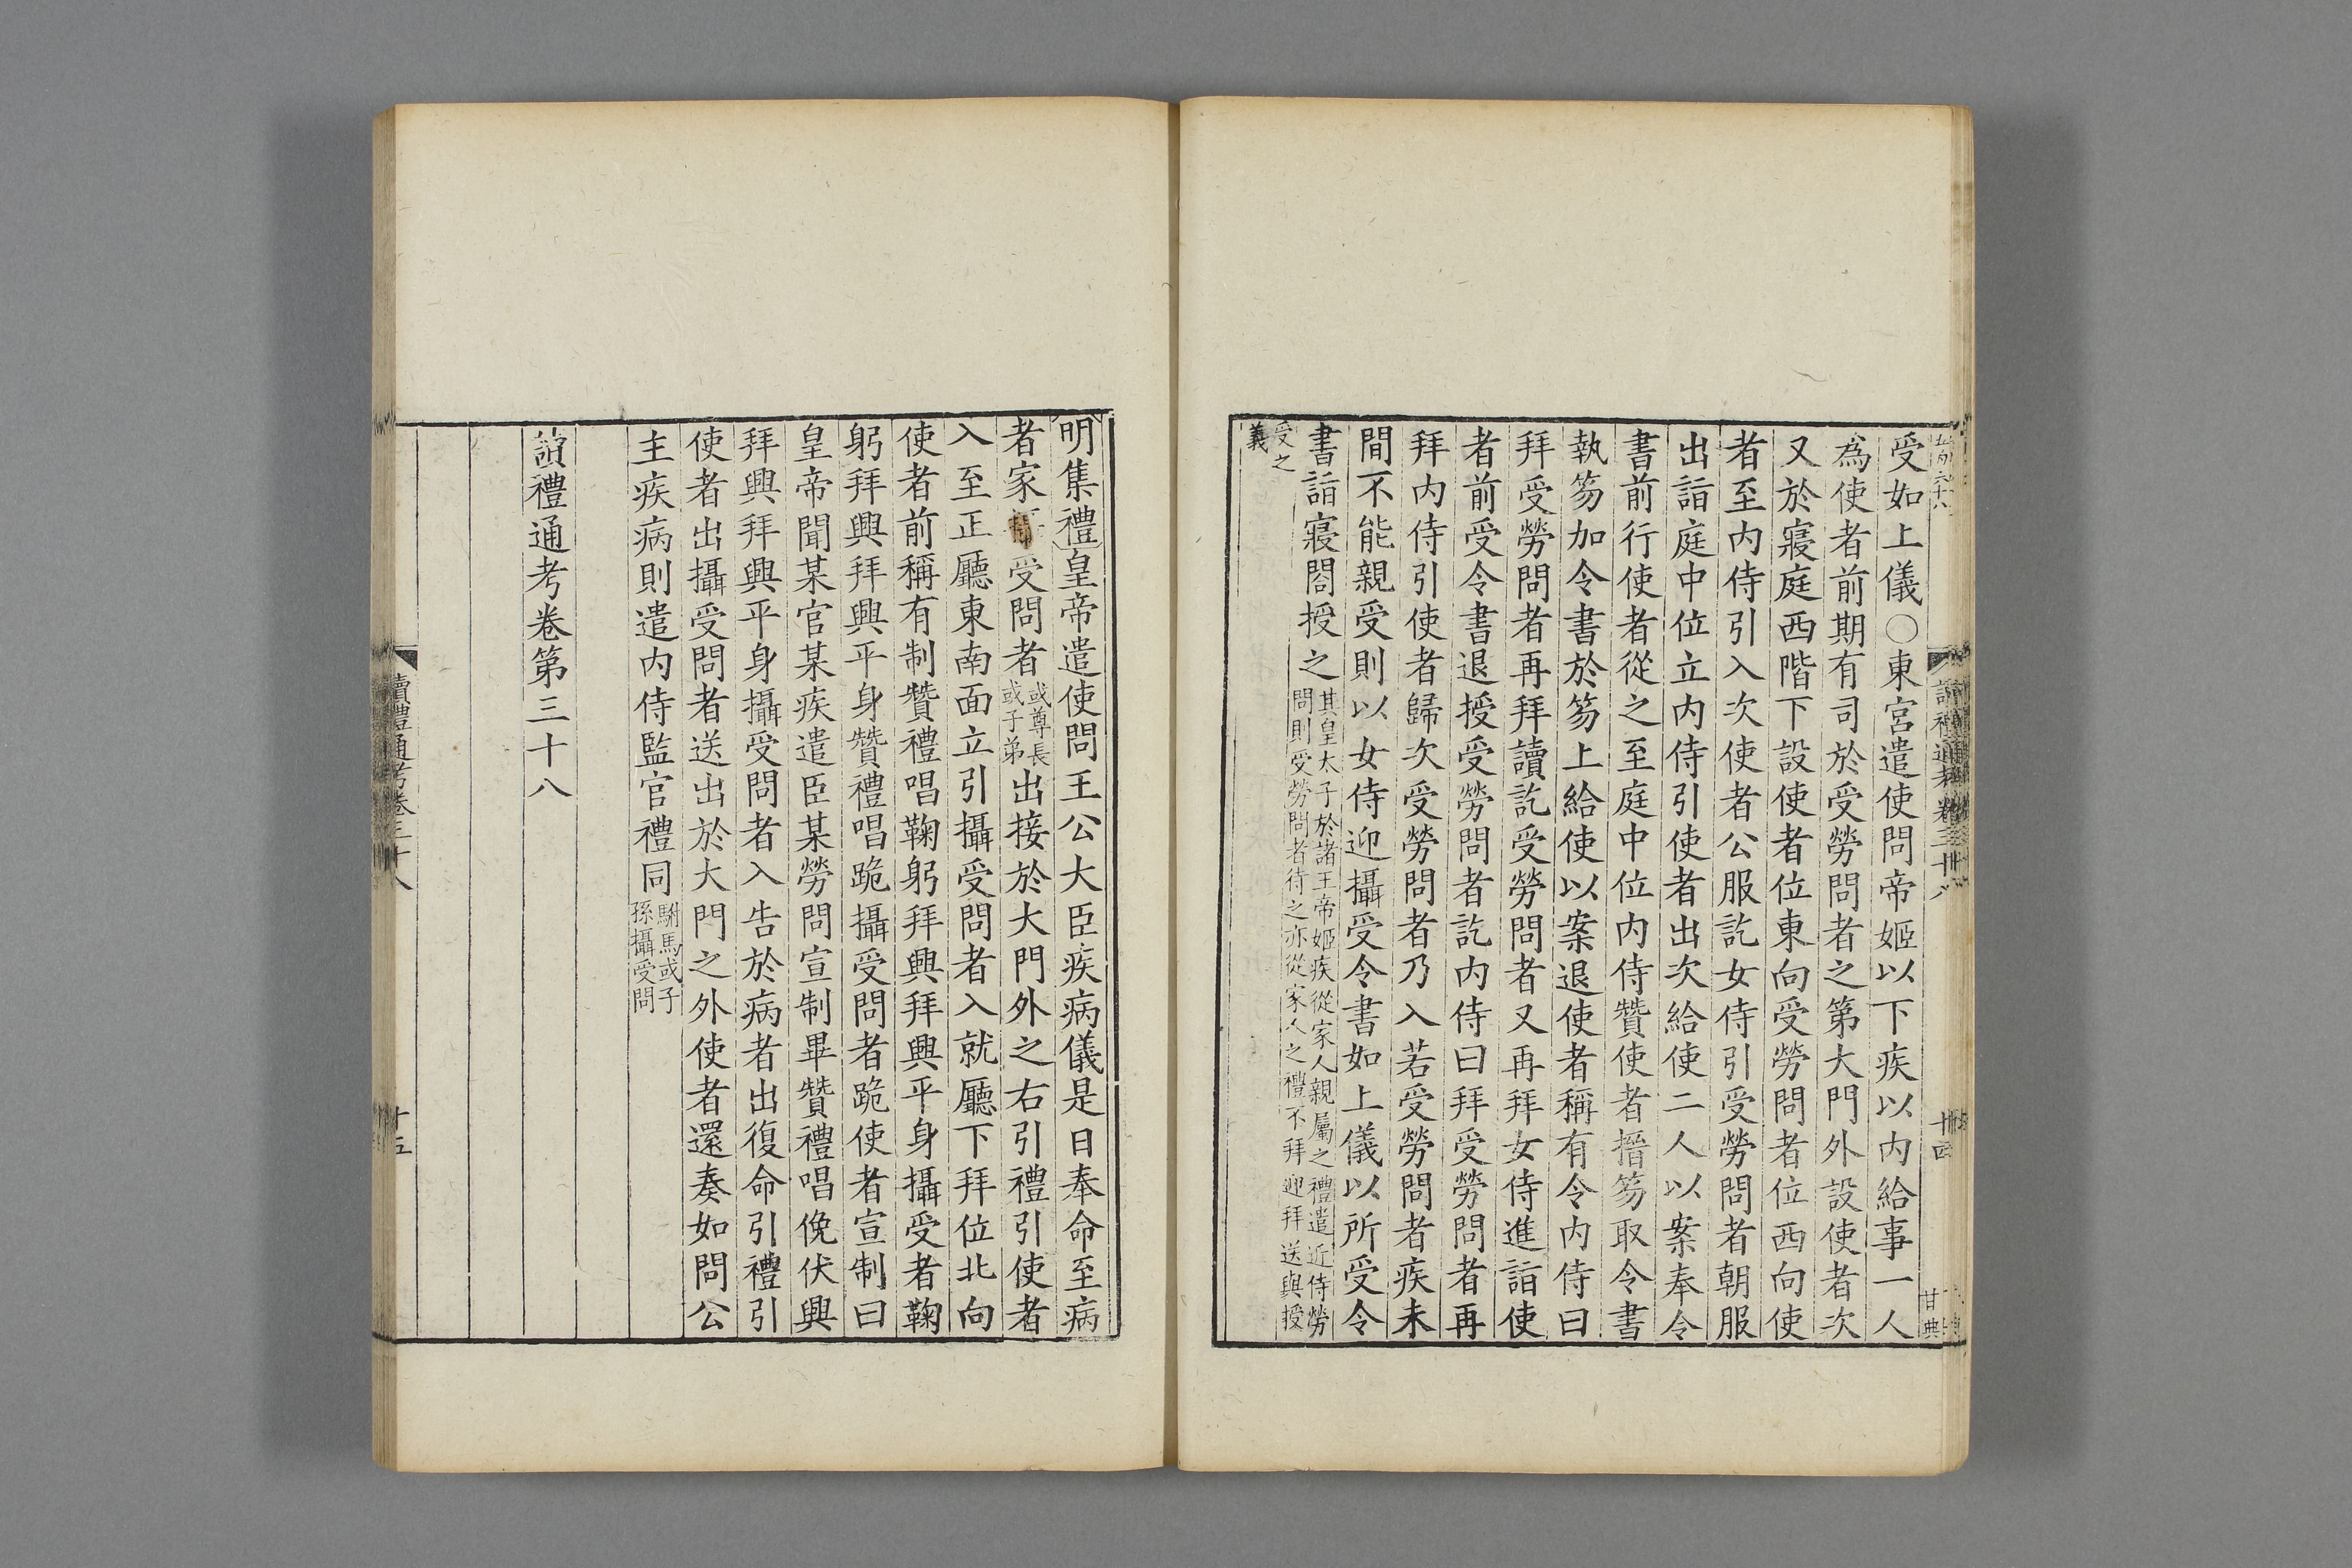 受如上儀○東宮遣使問帝姬以下疾以内給事一人
為使者前期有司於受勞問者之第大門外設使者次
又於寢庭西階下設使者位東向受勞問者位西向使
者至内侍引入次使者公服訖女侍引受勞問者朝服
出詣庭中位立内侍引使者出次給使二人以案奉令
書前行使者從之至庭中位内侍贊使者搢笏取令書
執笏加令書於笏上給使以案退使者稱有令内侍曰
拜受勞問者再拜讀訖受勞問者又再拜女侍進詣使
者前受令書退授受勞問者訖内侍曰拜受勞問者再
拜内侍引使者歸次受勞問者乃入若受勞問者疾未
間不能親受則以女侍迎攝受令書如上儀以所受令
書詣寢閤授之
其皇太子於諸王帝姬疾從家人親屬之禮遣近侍勞
問則受勞問者待之亦從家人之禮不拜迎拜送與授
受之
義
讀禮通考卷三十八
十四
明集禮皇帝遣使問王公大臣疾病儀是日奉命至病
者家受問者
或尊長
或子弟
出接於大門外之右引禮引使者
入至正廳東南面立引攝受問者入就廳下拜位北向
使者前稱有制贊禮唱鞠躬拜興拜興平身攝受者鞠
躬拜興拜興平身贊禮唱跪攝受問者跪使者宣制曰
皇帝聞某官某疾遣臣某勞問宣制畢贊禮唱俛伏興
拜興拜興平身攝受問者入告於病者出復命引禮引
使者出攝受問者送出於大門之外使者還奏如問公
主疾病則遣内侍監官禮同
駙馬或子
孫攝受問
讀禮通考卷第三十八
讀禮通考卷三十八
十五